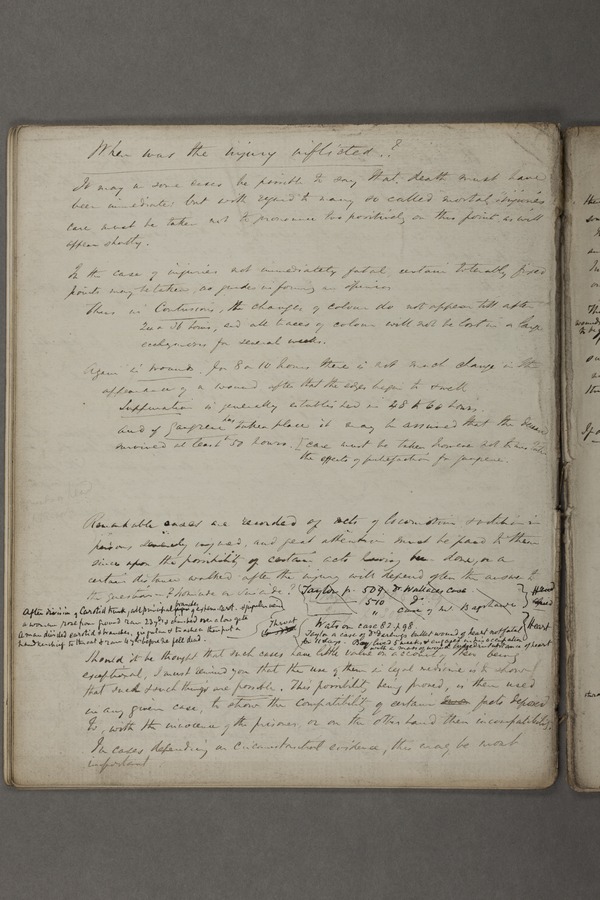 When was the injury inflicted?
It may in some cases be possible to say that death must have
been immediate: but with regard to many so called mortal injuries
care must be taken not to pronounce too positively on this point as will
appear shortly.
In the case of injuries not immediately fatal certain tolerably fixed
points may be taken, as guides in forming an opinion
Thus in Contusions, the changes of colour do not appear till after
24 or 36 hours, and all traces of colour will not be lost in a large
ecchymosis for several weeks.
Again in wounds. for 8 or 10 hours there is not much change in the
appearance of a wound after that the edges begin to swell
Suppuration is generally established in 48 to 60 hours,
and if Gangrene has taken place it may be assumed that the deceased
survived at least 50 hours. [care must be taken however not to mistake
the effects of putrefaction for gangrene.
Remarkable cases are recorded of acts of locomotion & volition in
persons severely injured, and great attention must be paid to them
since upon the possibility of certain acts having been done, or a
certain distance walked after the injury will depend often the answer to
the question - ? homicide or suicide? Taylor p. 509 Dr Wallaces case
510 Do
" case of Mr Bagshawe
Head
After division of Carotid trunk, all principal branches of ext.
a woman rose from ground ran 23 yds & climbed over a low gate
A man divided carotid & branches, jugulars & trachea then put a
handkerchief to throat & ran 4 yds before he fell dead.
Throat
Watson case 87 & 98
Heart
Taylor a case of bullet wound of heart not fatal
for 11 days. Boy lived 5 weeks & engaged in his occupation
with a mass of wood lodged in substance of heart
Should it be thought that such cases have little value on account of their being
exceptional, I must remind you that the use of them in legal medicine is to show
that such & such things are possible. This possibility being proved, is then used
in any given case, to show the compatibility of certain facts deposed
to, with the innocence of the prisoner, or on the other hand their incompatibility.
In cases depending on circumstantial evidence, this may be most
important